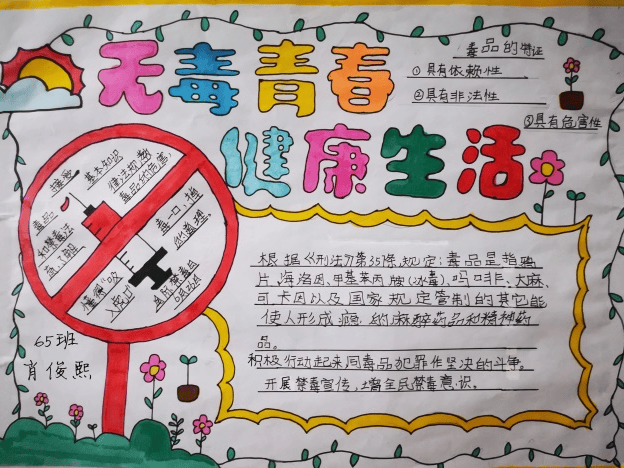 无毒青春
健康生活
毒品的特征
①具有依赖性
②具有非法性
③具有危害性
接受
基本知识
律法规教
毒品的危害,
毒品
和禁毒法
育,了解
毒一口,掉
的道理,
懂得“吸
入虎口
国际禁毒日
6月26日
65班
肖俊熙
根据《刑法》第357条规定:毒品是指鸦
片、海洛因、甲基苯丙胺(冰毒)、吗啡、大麻、
可卡因以及国家规定管制的其它能
使人形成瘾,的麻醉药品和精神药
品。
积极行动起来同毒品犯罪作坚决的斗争。
开展禁毒宣传,增全民禁毒意识。